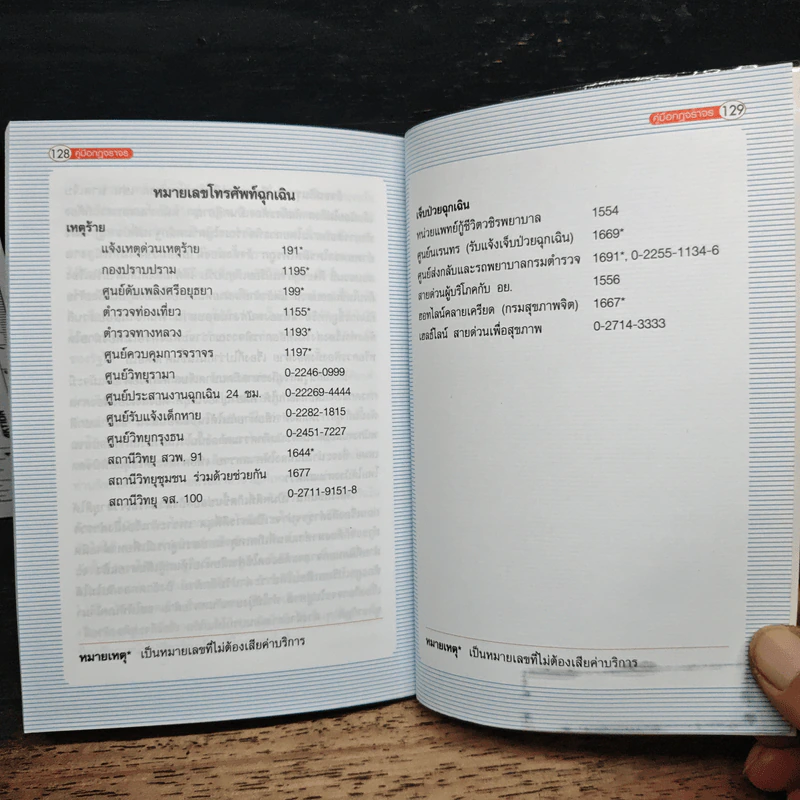 128 คู่มือกฎจราจร
หมายเลขโทรศัพท์ฉุกเฉิน
เหตุร้าย
แจ้งเหตุด่วนเหตุร้าย 191*
กองปราบปราม 1195*
ศูนย์ดับเพลิงศรีอยุธยา 199*
ตำรวจท่องเที่ยว 1155*
ตำรวจทางหลวง 1193*
ศูนย์ควบคุมการจราจร 1197*
ศูนย์วิทยุรามา 0-2246-0999
ศูนย์ประสานงานฉุกเฉิน 24 ชม. 0-22269-4444
ศูนย์รับแจ้งเด็กหาย 0-2282-1815
ศูนย์วิทยุกรุงธน 0-2451-7227
สถานีวิทยุ สวพ. 91 1644*
สถานีวิทยุชุมชน ร่วมด้วยช่วยกัน 1677
สถานีวิทยุ จส. 100 0-2711-9151-8
หมายเหตุ* เป็นหมายเลขที่ไม่ต้องเสียค่าบริการ
คู่มือกฎจราจร 129
เจ็บป่วยฉุกเฉิน
หน่วยแพทย์กู้ชีวิตวชิรพยาบาล 1554
ศูนย์นเรนทร (รับแจ้งเจ็บป่วยฉุกเฉิน) 1669*
ศูนย์ส่งกลับและรถพยาบาลกรมตำรวจ 1691*, 0-2255-1134-6
สายด่วนผู้บริโภคกับ อย. 1556
ฮอทไลน์คลายเครียด (กรมสุขภาพจิต) 1667*
เฮลธ์ไลน์ สายด่วนเพื่อสุขภาพ 0-2714-3333
หมายเหตุ* เป็นหมายเลขที่ไม่ต้องเสียค่าบริการ